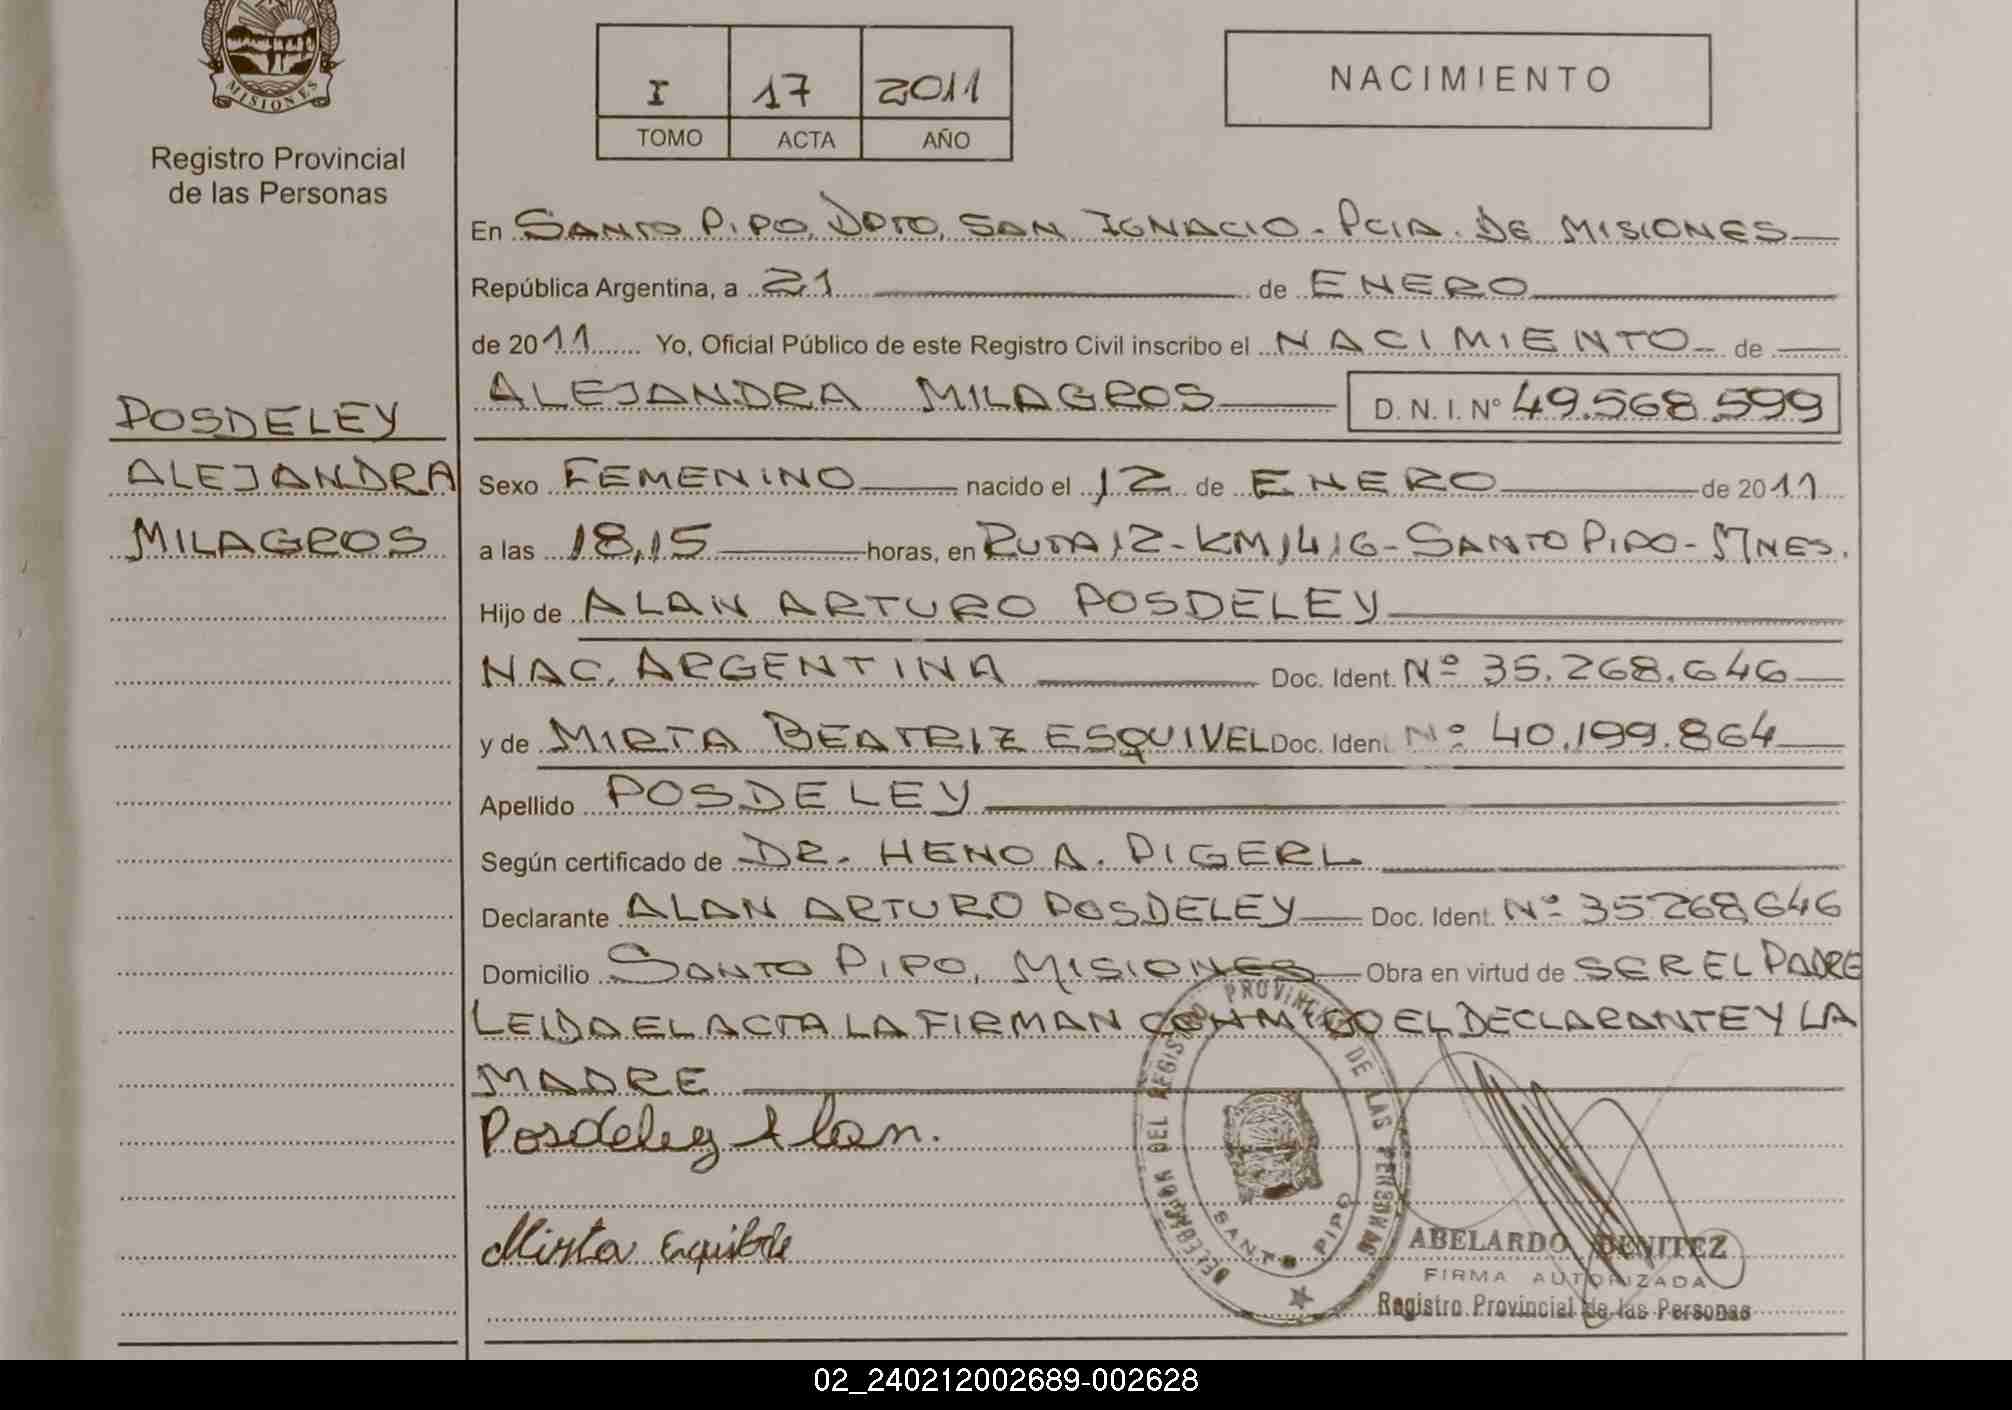 MISIONES
Registro Provincial
de las Personas
I 17 2011
TOMO ACTA AÑO
NACIMIENTO
En SANTO PIPO, DPTO, SAN IGNACIO - PCIA. DE MISIONES
República Argentina, a 21 de ENERO
de 2011 Yo, Oficial Público de este Registro Civil inscribo el NACIMIENTO de
ALEJANDRA MILAGROS D. N. I. Nº 49.568.599
POSDELEY
ALEJANDRA
MILAGROS
Sexo FEMENINO nacido el 12 de ENERO de 2011
a las 18,15 horas, en RUTA 12 - KM 1416 - SANTO PIPO - MNES.
Hijo de ALAN ARTURO POSDELEY
NAC. ARGENTINA Doc. Ident. Nº 35.268.646
y de MIRTA BEATRIZ ESQUIVEL Doc. Ident. Nº 40.199.864
Apellido POSDELEY
Según certificado de DR. HENO A. PIGERL
Declarante ALAN ARTURO POSDELEY Doc. Ident. Nº 35268646
Domicilio SANTO PIPO, MISIONES Obra en virtud de SER EL PADRE
LEIDA EL ACTA LA FIRMAN CONMIGO EL DECLARANTE Y LA
MADRE
Posdeley Alan.
Mirta
DELEGACION DEL REGISTRO PROVINCIAL DE LAS PERSONAS
SANTO PIPO
ABELARDO BENITEZ
FIRMA AUTORIZADA
Registro Provincial de las Personas
02_240212002689-002628